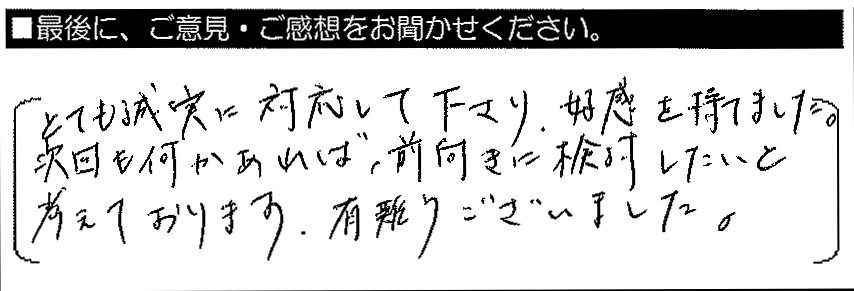 ■最後に、ご意見・ご感想をお聞かせください。
とても誠実に対応して下さり、好感を持てました。
次回も何かあれば、前向きに検討したいと
考えております。有難うございました。